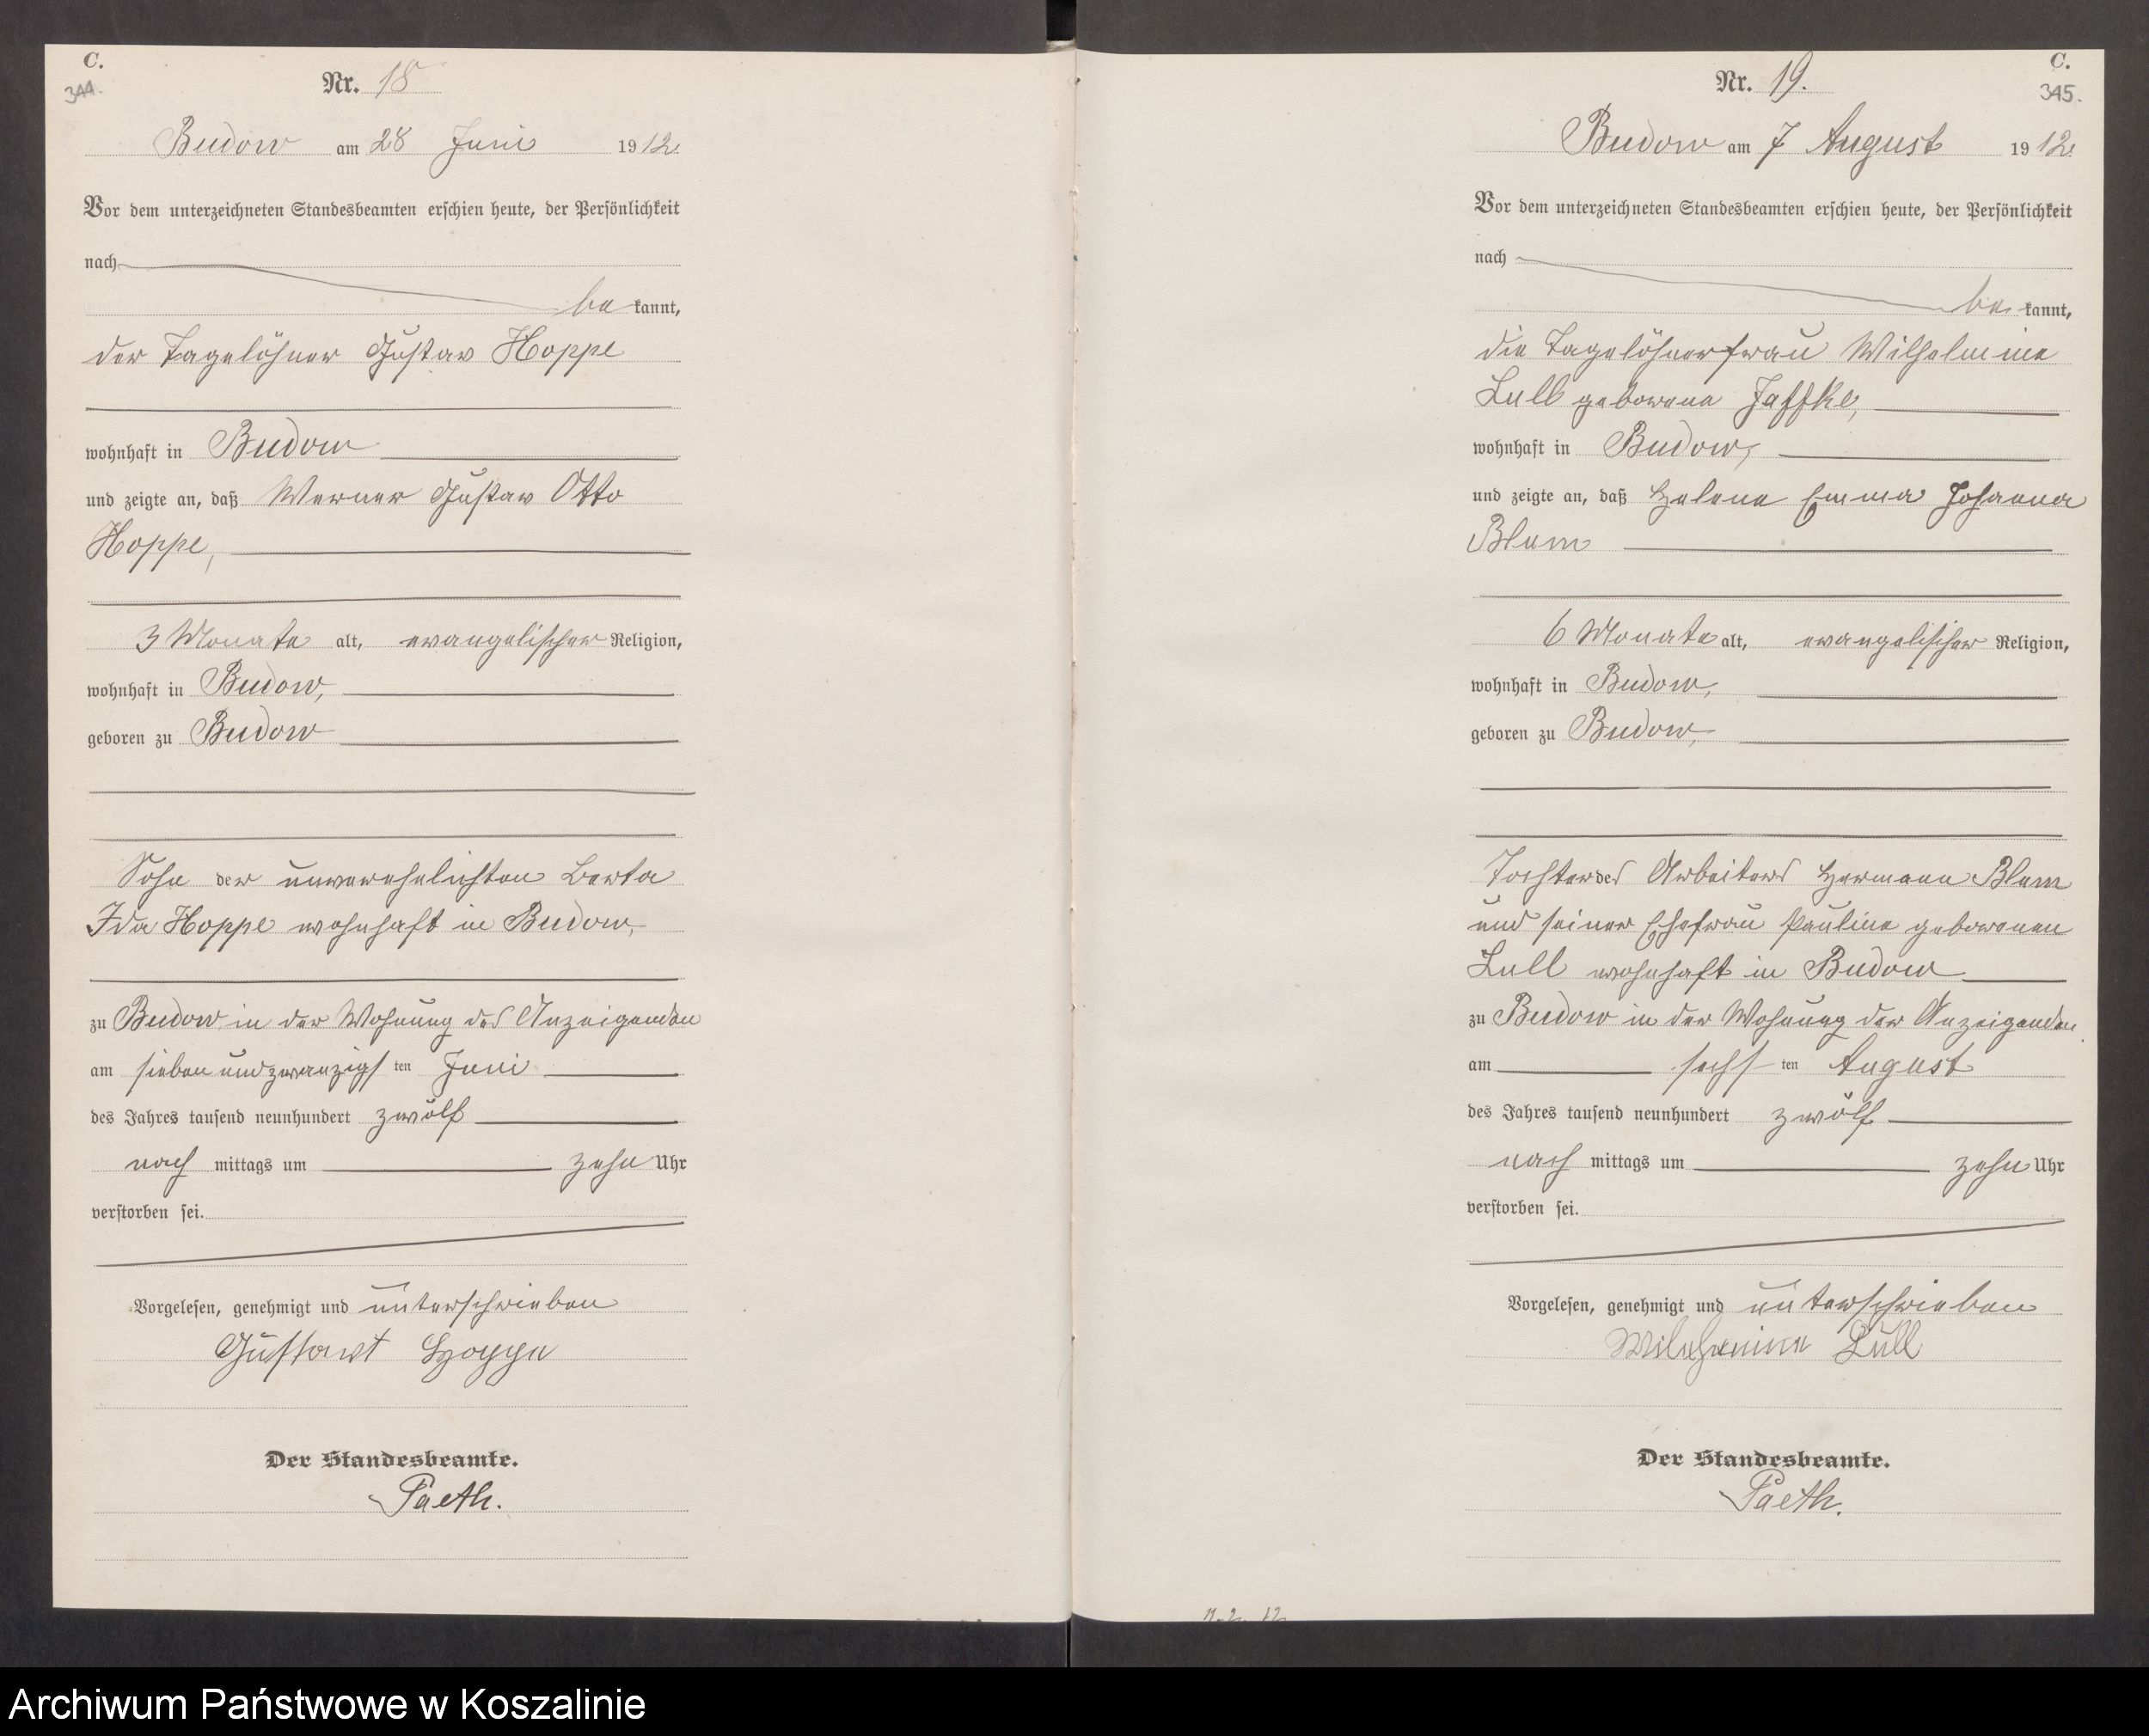 C.
344.
Nr. 18
Budow am 28 Juni 1912.
Vor dem unterzeichneten Standesbeamten erschien heute, der Persönlichkeit
nach
bekannt,
der Tagelöhner Gustav Hoppe
wohnhaft in Budow
und zeigte an, daß Werner Gustav Otto
Hoppe,
3 Monate alt, evangelischer Religion,
wohnhaft in Budow,
geboren zu Budow
Sohn der unverehelichten Berta
Ida Hoppe wohnhaft in Budow,
zu Budow in der Wohnung des Anzeigenden
am siebenundzwanzigsten Juni
des Jahres tausend neunhundert zwölf
nach mittags um zehn Uhr
verstorben sei.
Vorgelesen, genehmigt und unterschrieben
Gustawt Hoppe
Der Standesbeamte.
Paeth.
C.
345.
Nr. 19.
Budow am 7 August 1912.
Vor dem unterzeichneten Standesbeamten erschien heute, der Persönlichkeit
nach
bekannt,
die Tagelöhnerfrau Wilhelmine
Lull geborene Jaffke,
wohnhaft in Budow,
und zeigte an, daß Helene Emma Johanna
Blum
6 Monate alt, evangelischer Religion,
wohnhaft in Budow,
geboren zu Budow,
Tochter des Arbeiters Hermann Blum
und seiner Ehefrau Pauline geborenen
Lull wohnhaft in Budow
zu Budow in der Wohnung der Anzeigenden
am sechsten August
des Jahres tausend neunhundert zwölf
nach mittags um zehn Uhr
verstorben sei.
Vorgelesen, genehmigt und unterschrieben
Lull
Der Standesbeamte.
Paeth.
Archiwum Państwowe w Koszalinie